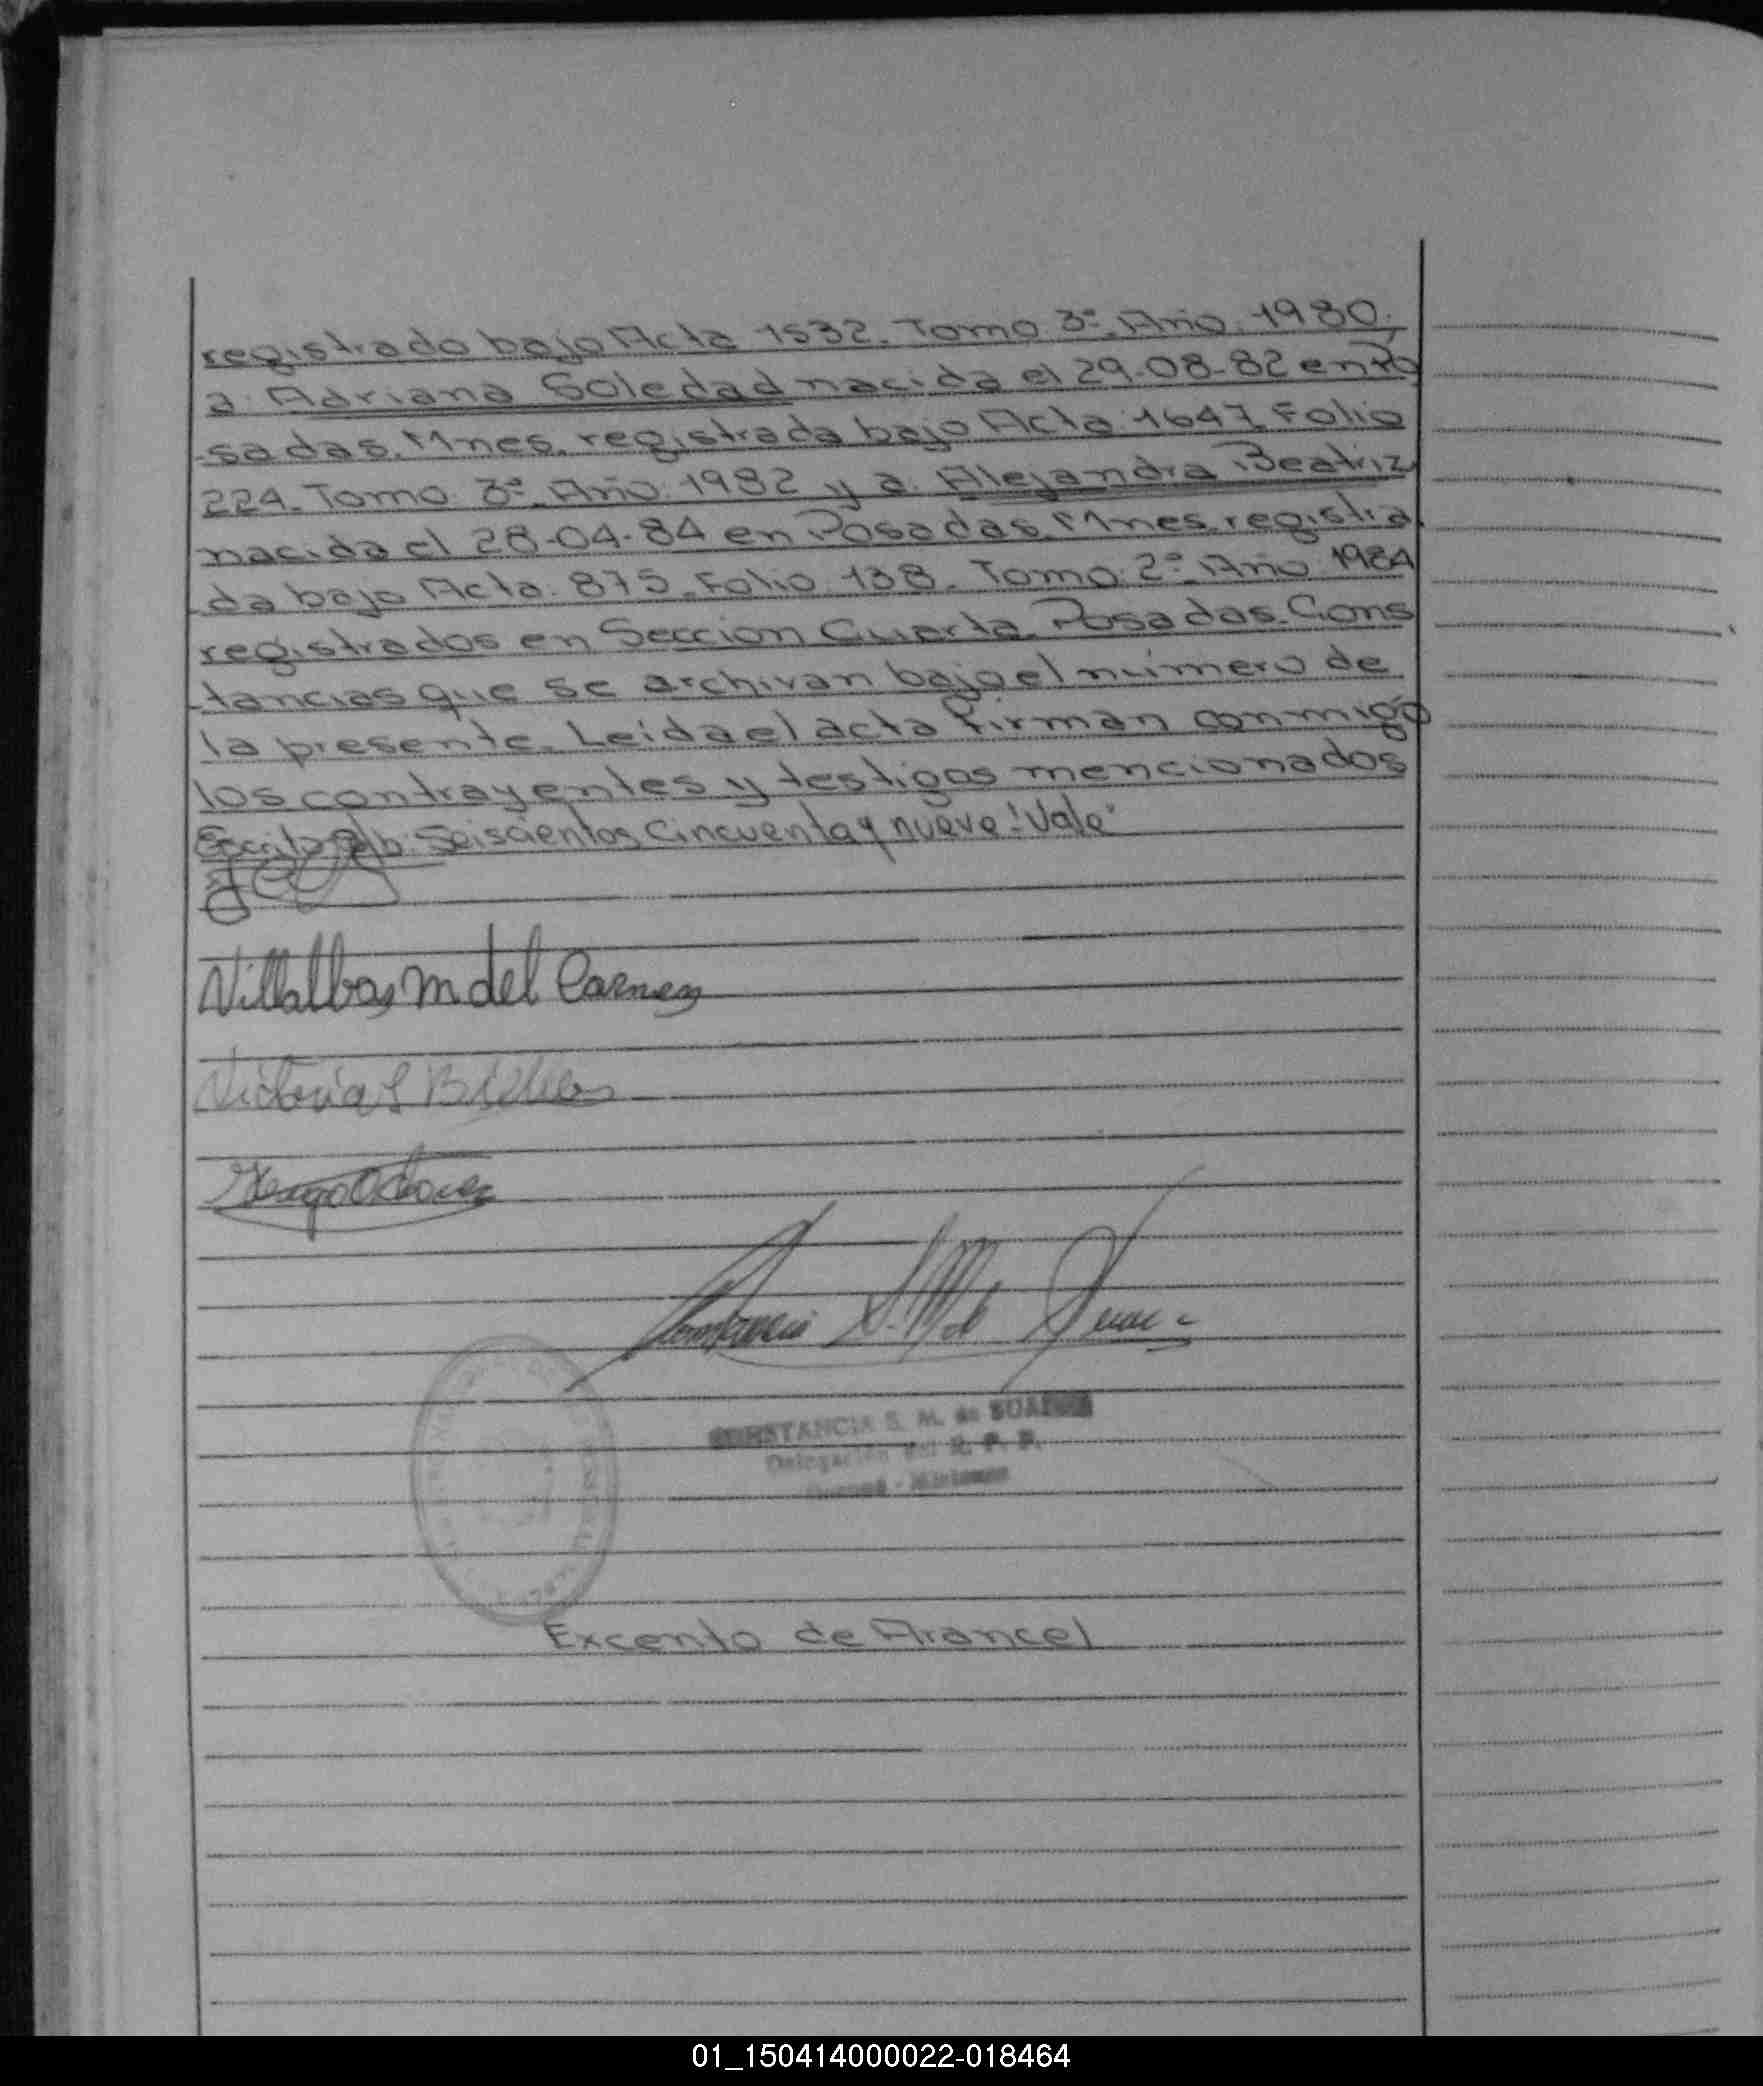 registrado bajo Acta 1532. Tomo 3º. Año. 1980,
a: Adriana Soledad nacida el 29-08-82 en Po
sadas. Mnes. registrada bajo Acta 1647. Folio
224. Tomo 3º. Año. 1982 y a: Alejandra Beatriz
nacida el 28-04-84 en Posadas. Mnes. registra
da bajo Acta. 875. Folio. 138. Tomo. 2º. Año 1984
registrados en Seccion Cuarta. Posadas. Cons
tancias que se archivan bajo el número de
la presente. Leida el acta firman conmigo
los contrayentes y testigos mencionados
Escrito s/b: Seiscientos Cincuenta y nueve: "Vale"
Villalba, M del Carmen
Victoria S
Hugo
Constancia S. M. de
CONSTANCIA S. M. de SUAREZ
Delegación del R. P. P.
Misiones
Excento de Arancel
01_150414000022-018464